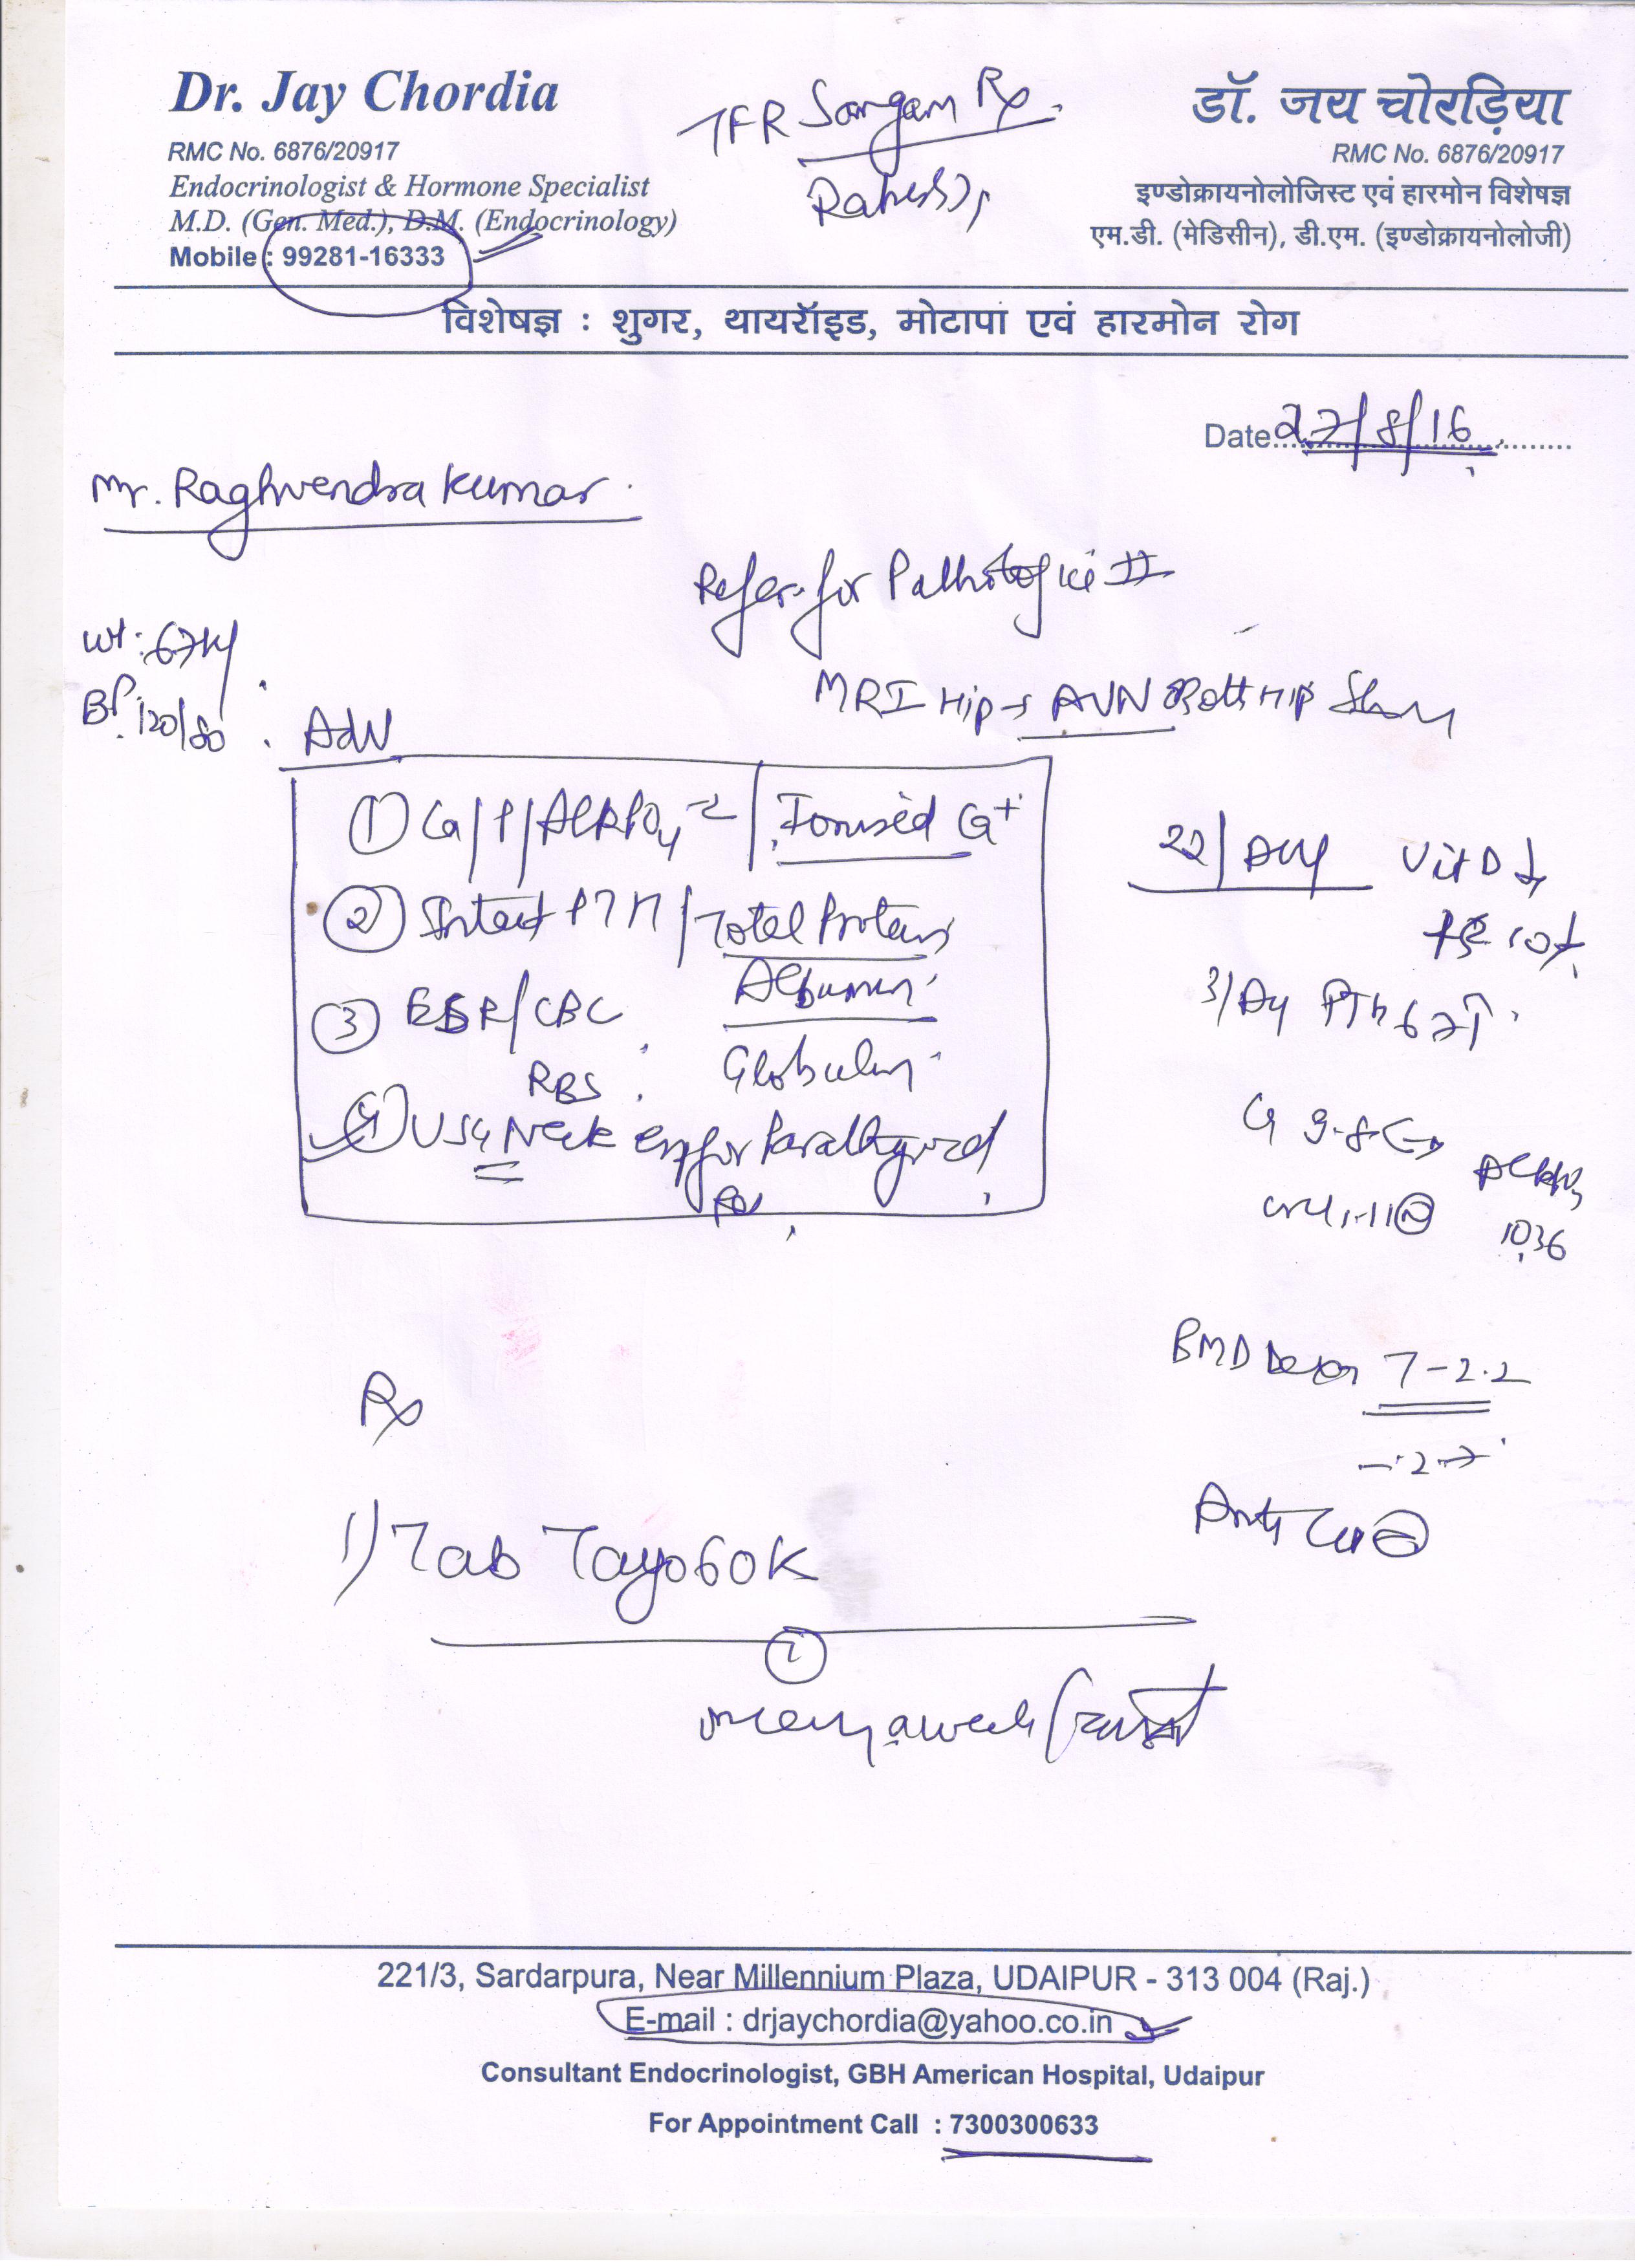 Dr. Jay Chordia
RMC No. 6876/20917
Endocrinologist & Hormone Specialist
M.D. (Gen. Med.), D.M. (Endocrinology)
Mobile : 99281-16333
डॉ. जय चोरड़िया
RMC No. 6876/20917
इण्डोक्रायनोलोजिस्ट एवं हारमोन विशेषज्ञ
एम.डी. (मेडिसीन), डी.एम. (इण्डोक्रायनोलोजी)
विशेषज्ञ : शुगर, थायरॉइड, मोटापा एवं हारमोन रोग
Date 27/8/16
Mr. Raghvendra Kumar
Refer for Pathologic
Wt: 67
BP: 120/80
MRI Hip → AVN Both Hip
Adv
① Ca/P/AlkPO4 / Ionised Ca+
② Intact PTH / Total Proteins
Albumin
Globulin
③ ESR/CBC
RBS
④ USG Neck for Parathyroid
22/Aug Vit D ↓
PTH 67 ↑
9.8
1.11 Ⓝ
1036
BMD T -2.2
Rx
1) Tab Tayo 60K
①
a week
221/3, Sardarpura, Near Millennium Plaza, UDAIPUR - 313 004 (Raj.)
E-mail : drjaychordia@yahoo.co.in
Consultant Endocrinologist, GBH American Hospital, Udaipur
For Appointment Call : 7300300633